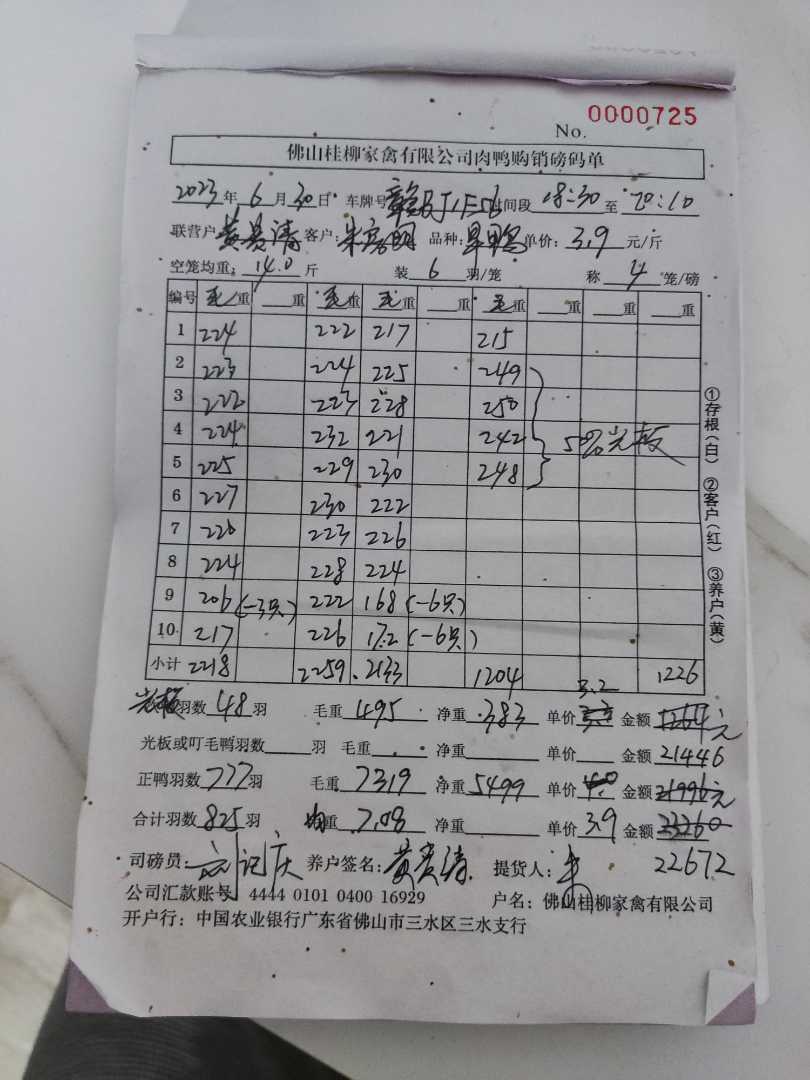 No. 0000725
佛山桂柳家禽有限公司肉鸭购销磅码单
2023年 6月 30日 车牌号 时间段 18:30 至 20:10
联营户 黄贵清 客户: 品种: 单价: 3.9 元/斤
空笼均重: 14.0 斤 装 6 羽/笼 称 4 笼/磅
编号 毛重 重 毛重 毛重 重 毛重 重 重 重
1 224 222 217 215
2 223 224 225 249
3 222 223 228 250
4 224 232 221 242 5%光板
5 225 229 230 248
6 227 230 222
7 226 223 226
8 224 228 224
9 206 (-3只) 222 168 (-6只)
10 217 226 172 (-6只)
小计 2218 2259 2133 1204 1226
光板羽数 48 羽 毛重 495 净重 383 单价 3.2 金额 1264元
光板或叮毛鸭羽数 羽 毛重 净重 单价 金额 21446
正鸭羽数 777 羽 毛重 7319 净重 5499 单价 4.0 金额 21996元
合计羽数 825 羽 均重 7.08 净重 单价 3.9 金额 23260
22672
司磅员: 养户签名: 黄贵清 提货人:
公司汇款账号 4444 0101 0400 16929 户名: 佛山桂柳家禽有限公司
开户行: 中国农业银行广东省佛山市三水区三水支行
①存根(白) ②客户(红) ③养户(黄)